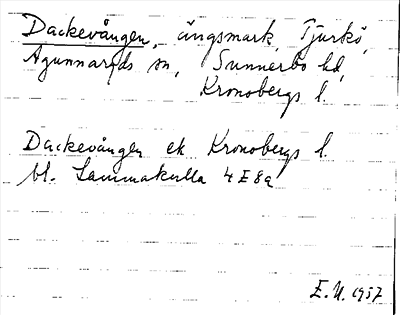 Dackevången, ängsmark, Tjurkö,
Agunnaryds sn, Sunnerbo hd,
Kronobergs l.
Dackevången ek Kronobergs l.
bl. Lammakulla 4E8a
E.U. 1957